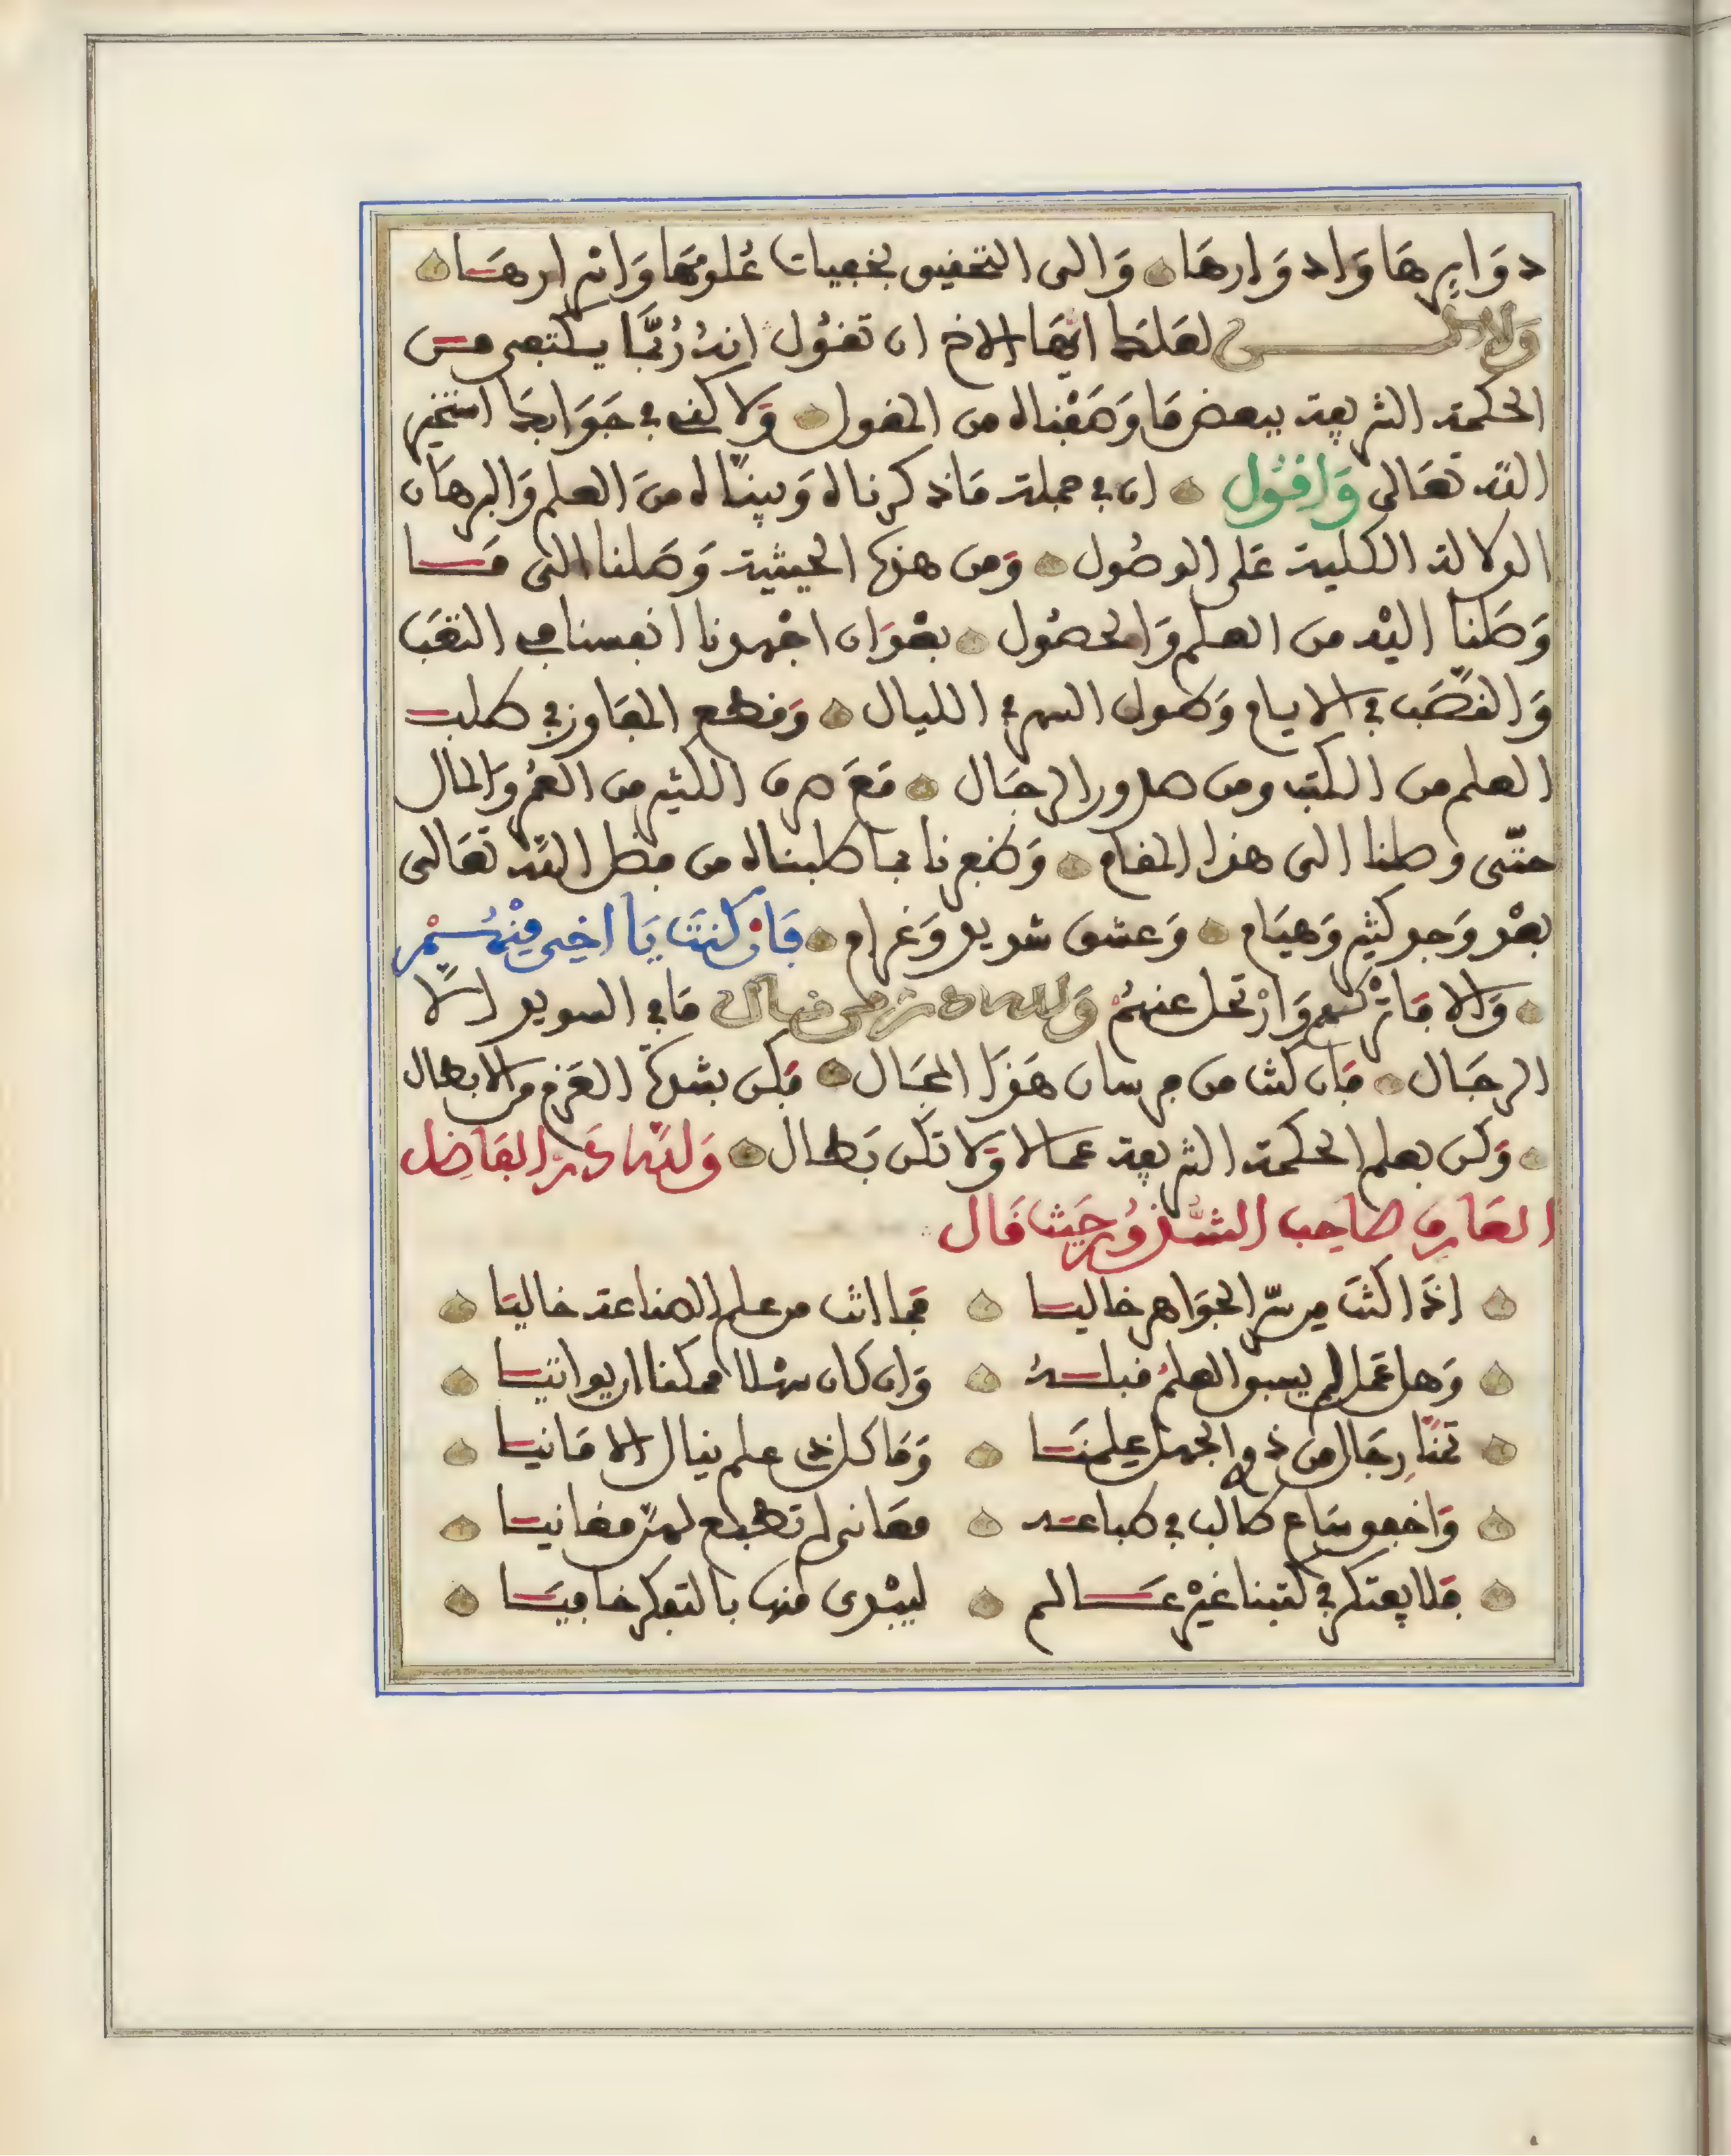 دوايرها وادوارها والى التحقيق بخفيات علومها واسرارها
ولاكن لعلك ايها الاخ ان تقول انه ربما يكتفى من
الحكمة الشريفة ببعض ما وصفناه من المقول ولاكنى فى جوابك استخير
الله تعالى واقول ان فى جملة ما ذكرناه وبيناه من العلم والبرهان
الدلالة الكلية على الوصول ومن هذه الحيثية وصلنا الى ما
وصلنا اليه من العلم والحصول بعد ان اجهدنا انفسنا فى التعب
والنصب فى الايام وطول السهر فى الليال وقطع المفاوز فى طلب
العلم من الكتب ومن صدور الرجال مع صرف الكثير من العمر والمال
حتى وصلنا الى هذا المقام وظفرنا بما طلبناه من فضل الله تعالى
بعد وجد كثير وهيام وعشق شديد وغرام فان كنت يا اخى منهم سر
والا فاتركهم وارتحل عنهم ولله در من قال ما فى السويد الا
الرجال فان كنت من فرسان هذا المجال فكن بشدة العزم من الابطال
وكن بعلم الحكمة الشريفة عمالا ولا تكن بطال ولله در الفاضل
العارف صاحب الشذور حيث قال
اذا كنت من سر الجواهر خاليا فما انت من علم الصناعة خاليا
وهل عمل لم يسبق العلم قبله وان كان سهلا ممكنا اريدانيا
تمنا رجال من ذوى الجهل علمنا وما كل ذى علم ينال الامانيا
واخفق ساع طالب فى طباعه معانى لم تطبع لهن مغانيا
فلا يفتكر فى كتبنا غير عالم ليبدى منها بالتفكر خافيا